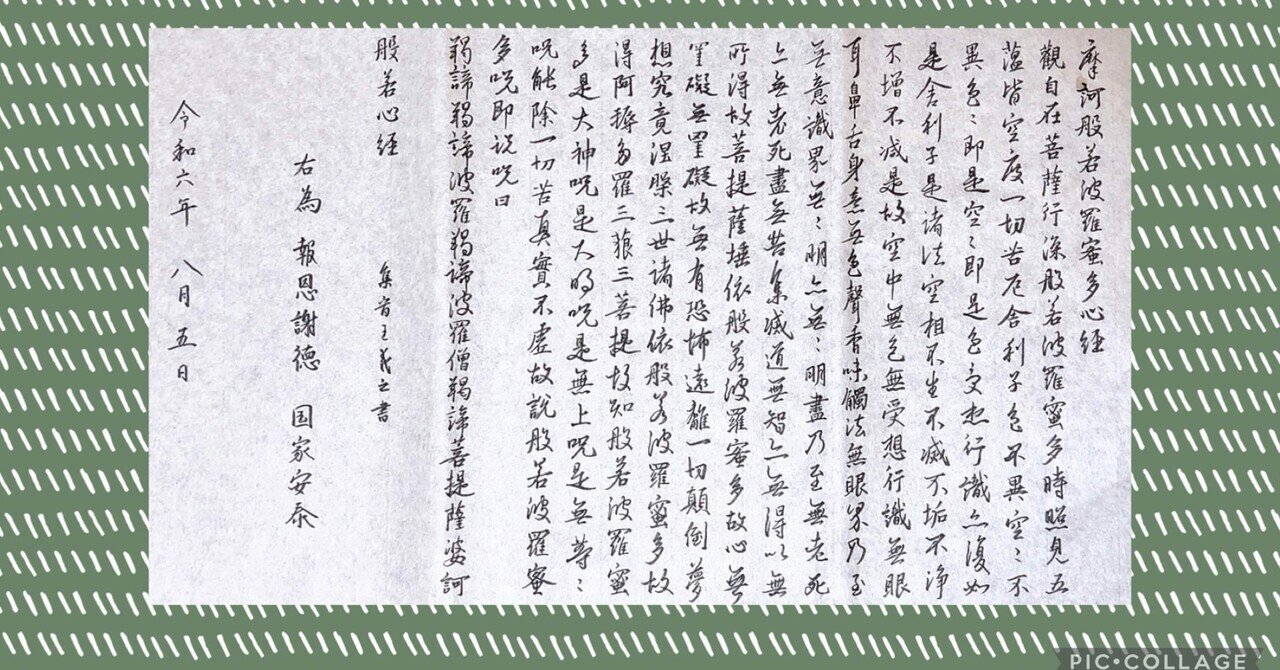 摩訶般若波羅蜜多心経
觀自在菩薩行深般若波羅蜜多時照見五
蘊皆空度一切苦厄舍利子色不異空〻不
異色〻即是空〻即是色受想行識亦復如
是舍利子是諸法空相不生不滅不垢不浄
不增不減是故空中無色無受想行識無眼
耳鼻舌身意無色聲香味觸法無眼界乃至
無意識界無〻明亦無〻明盡乃至無老死
亦無老死盡無苦集滅道無智亦無得以無
所得故菩提薩埵依般若波羅蜜多故心無
罣礙無罣礙故無有恐怖遠離一切顛倒夢
想究竟涅槃三世諸佛依般若波羅蜜多故
得阿耨多羅三藐三菩提故知般若波羅蜜
多是大神呪是大明呪是無上呪是無等〻
呪能除一切苦真實不虚故說般若波羅蜜
多呪即説呪曰
羯諦羯諦波羅羯諦波羅僧羯諦菩提薩婆訶
般若心経　集晋王羲之書
右為　報恩謝徳　国家安泰
令和六年　八月五日
PIC•COLLAGE